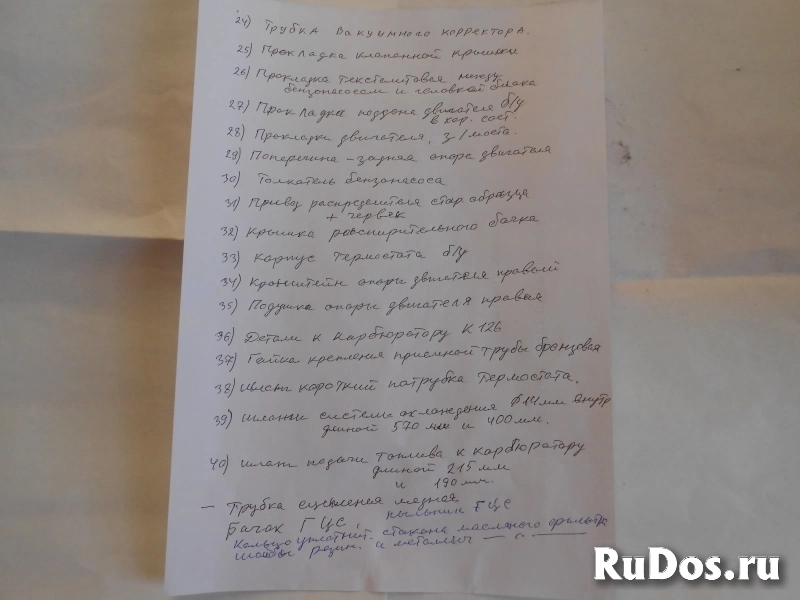 24) Трубка вакуумного корректора.
25) Прокладка клапанной крышки
26) Прокладка текстолитовая между
бензонасосом и головкой блока
27) Прокладка поддона двигателя б/у
в хор. сост.
28) Прокладки двигателя, з/моста.
29) Поперечина - задняя опора двигателя
30) Толкатель бензонасоса
31) Привод распределителя стар. образца
+ червяк
32) Крышка расширительного бачка
33) Корпус термостата б/у
34) Кронштейн опоры двигателя правый
35) Подушка опоры двигателя правая
36) Детали к карбюратору К 126
37) Гайка крепления приемной трубы бронзовая
38) Шланг короткий патрубка термостата.
39) Шланги системы охлаждения внутр
длиной 570 мм и 400 мм.
40) Шланг подачи топлива к карбюратору
длиной 215 мм
и 190 мм.
— Трубка сцепления медная
Бачок ГЦС, пыльник ГЦС
Кольцо уплотнит. стакана масляного фильтра
шайбы резин. и металлич — " —
RuDos.ru